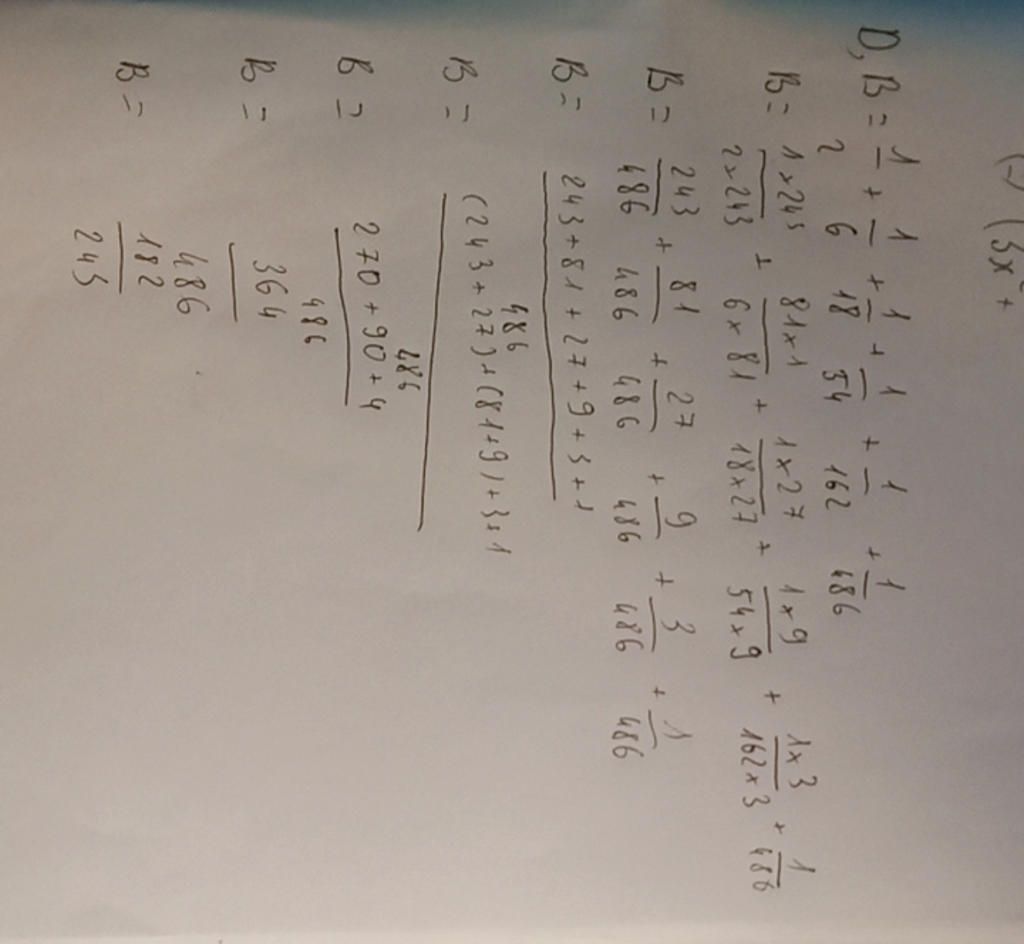 (-) (3x² +
D, B = 1/2 + 1/6 + 1/18 + 1/54 + 1/162 + 1/486
B = 1×243/2×243 + 81×1/6×81 + 1×27/18×27 + 1×9/54×9 + 1×3/162×3 + 1/486
B = 243/486 + 81/486 + 27/486 + 9/486 + 3/486 + 1/486
B = 243+81+27+9+3+1/486
B = (243+27)+(81+9)+3+1/486
B = 270+90+4/486
B = 364/486
B = 182/243